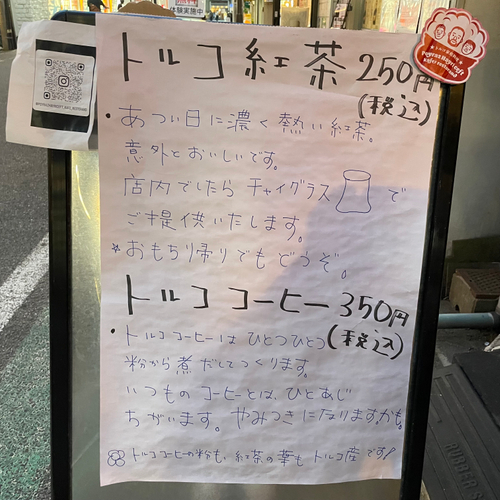 トルコ紅茶 250円
(税込)
・あつい日に濃く熱い紅茶。
意外とおいしいです。
店内でしたら チャイグラス で
ご提供いたします。
*おもち帰りでもどうぞ。
トルココーヒー 350円
(税込)
・トルココーヒーは ひとつひとつ
粉から煮だしてつくります。
いつものコーヒーとは、ひとあじ
ちがいます。やみつきになりますかも。
トルココーヒーの粉も、紅茶の葉も トルコ産です!